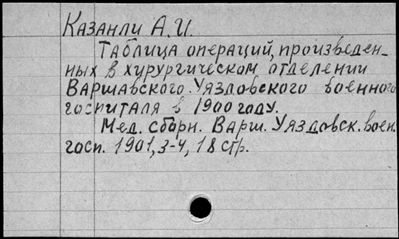 Казанли А.И.
Таблица операций, произведен-
ных в хирургическом отделении
Варшавского Уяздовского военного
госпиталя в 1900 году.
Мед. сборн. Варш. Уяздовск. воен.
госп. 1901, 3-4, 18 стр.